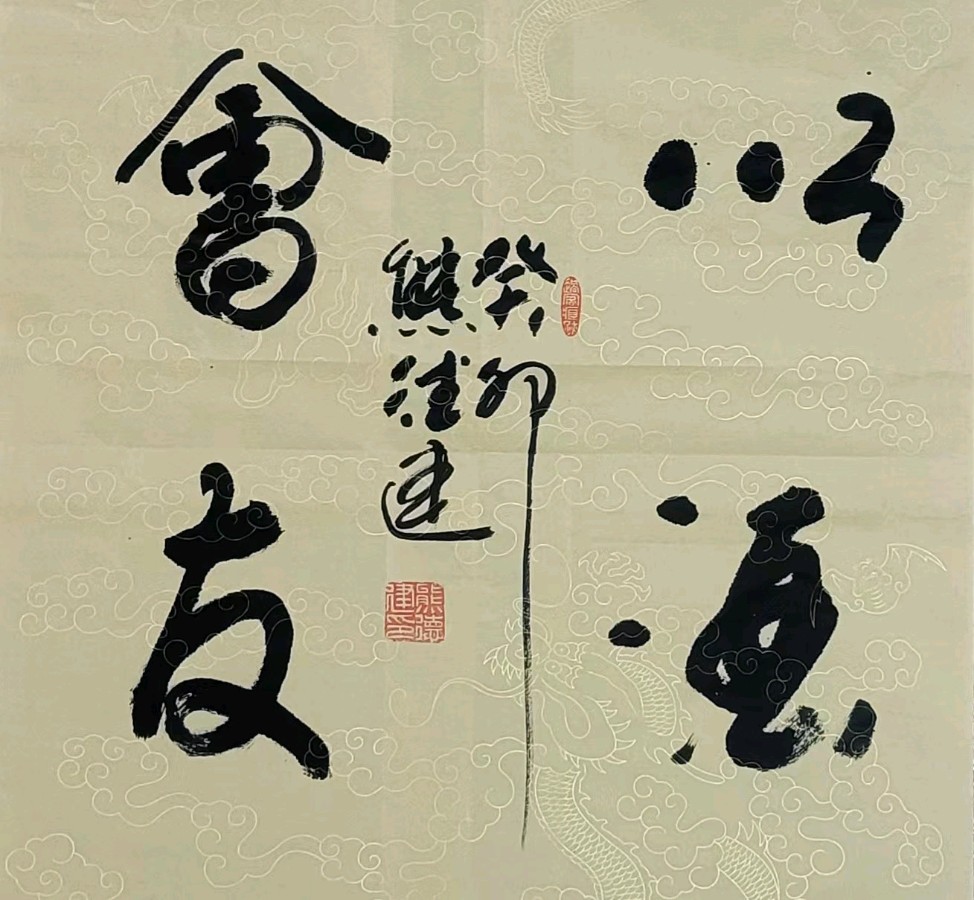 以漁
會友
癸卯
熊德建
熊德
建印